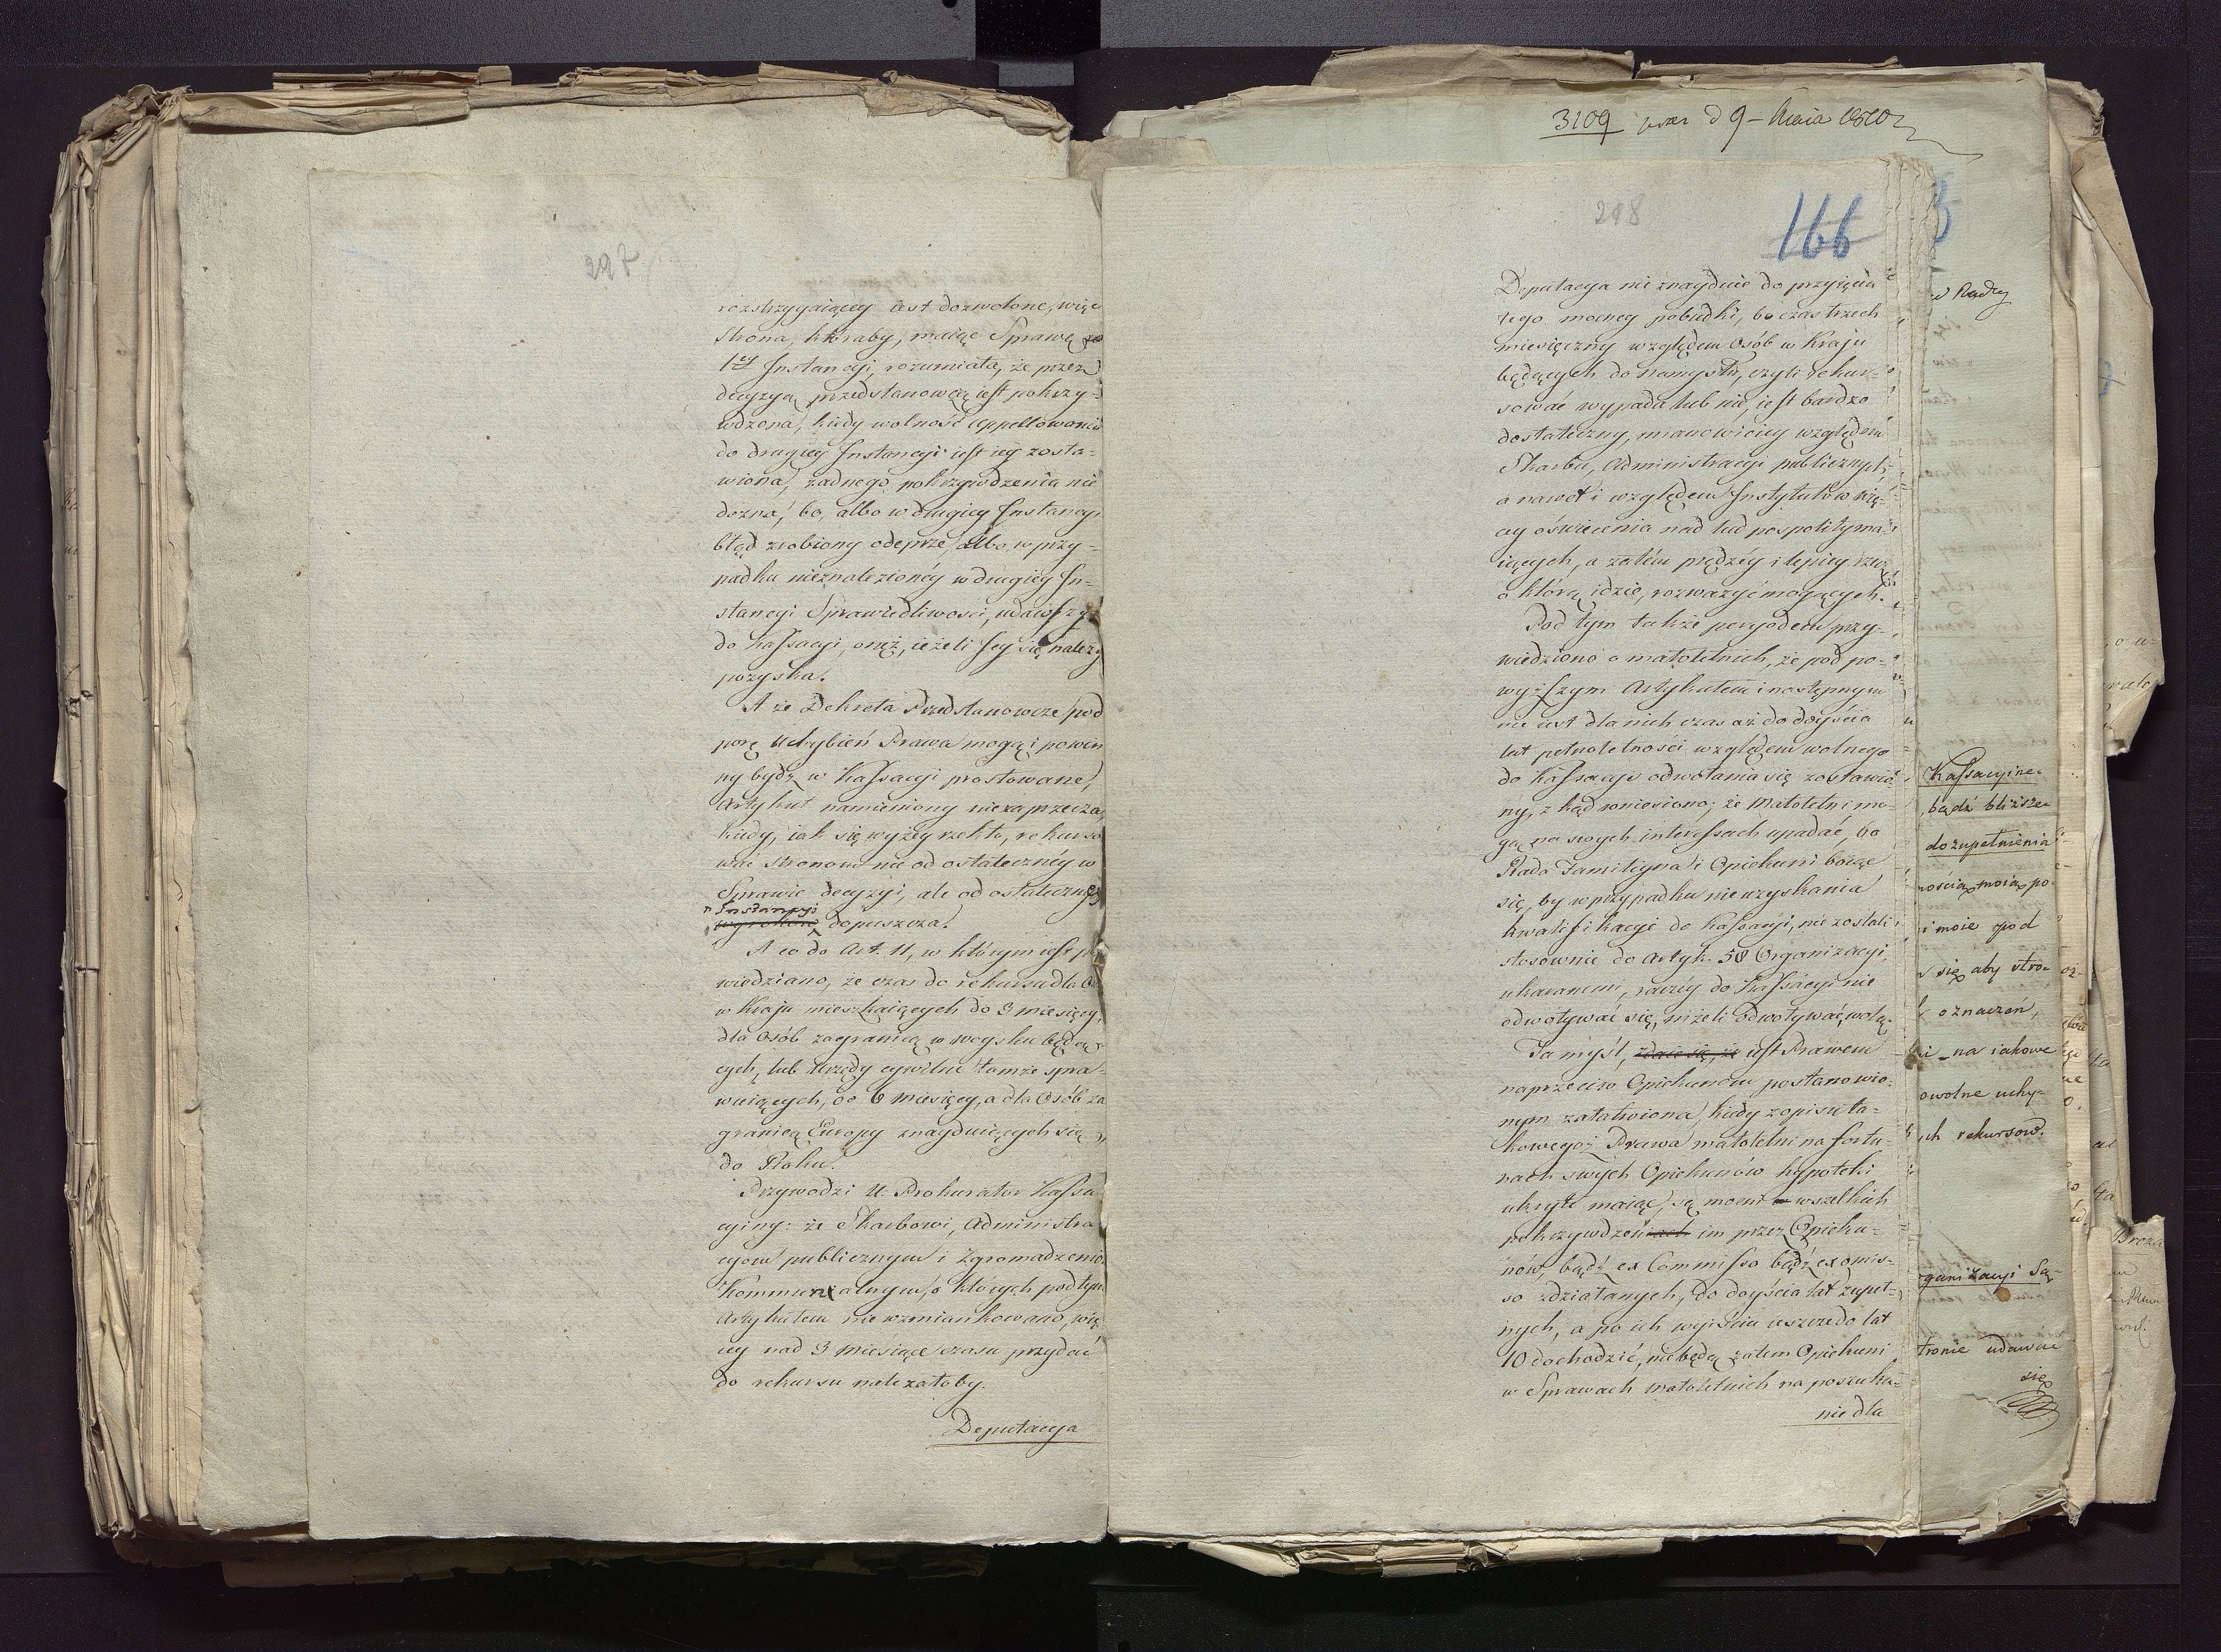 297
rozstrzygaiącey iest dozwolone, więc
Strona, któraby, maiąc Sprawę w
1ey Instancyi, rozumiała, że przez
decyzyą przedstanowczą iest pokrzy=
wdzona, kiedy wolność appellowania
do drugiey Instancyi iest iey zosta=
wiona, żadnego pokrzywdzenia nie
dozna, bo, albo w drugiey Instancyi
błąd zrobiony odeprze, albo w przy=
padku nieznalezionéy w drugiey In=
stancyi Sprawiedliwości, udawszy
do Kassacyi, onęż, ieżeli Jey się należy
pozyska.
A że Dekreta Przedstanowcze pod
porę Uchybień Prawa mogą i powin
ny bydź w Kassacyi prostowane,
Artykuł namieniony nie zaprzecza,
kiedy, iak się wyżey rzekło, rekurso
wać stronom nie od ostatecznéy w
Sprawie decyzyi, ale od ostateczney
Instancyi
wyroków dopuszcza.
A co do Art. 11, w którym iest po
wiedziano, że czas do rekursu dla
w Kraju mieszkaiących do 3 miesięcy,
dla Osób zagranicą w woysku będą=
cych, lub Urzędy cywilne tamże spra=
wuiących, do 6 miesięcy, a dla Osób za
granicą Europy znayduiących się,
do Roku.
Przywodzi U. Prokurator Kassa
cyiny: że Skarbowi, Administra
cyom publicznym i Zgromadzenio
Kommunalnym, o których pod tym
Artykułem nie wzmiankowano, wię
cey nad 3 miesiące czasu przydać
do rekursu należałoby.
Deputacya
3109 prez d 9 - Maia 1810
218
166
Deputacya nie znayduie do przyięcia
tego mocney pobudki, bo czas trzech
miesięczny względem Osób w Kraju
będących do namysłu, czyli rekur=
sować wypada lub nie, iest bardzo
dostateczny, mianowiciey względem
Skarbu, Administracyi publicznych,
a nawet i względem Instytutów wię=
cy oświecenia nad lud pospolity ma=
iących, a zatém prędzéy i lepiey rzecz
o którą idzie, rozważyć mogących.
Pod tym także peryodem przy=
wiedziono o małoletnich, że pod po=
wyższym Artykułem i następnym
nie iest dla nich czas aż do doyścia
lat pełnoletności względem wolnego
do Kassacyi odwołania się zostawio
ny, zkąd wniesiono, że małoletni mo=
gą na swych interessach upadać, bo
Rada Familiyna i Opiekuni boiąc
się, by w przypadku nieuzyskania
kwalifikacyi do Kassacyi, nie zostali
stosownie do Artyk. 58 Organizacyi
ukaranemi, raczéy do Kassacyi nie
odwoływać się, niżeli odwoływać wolą.
Ta myśl, zdaie się, że iest Prawem
naprzeciw Opiekunom postanowio=
nym załatwiona, kiedy z opisu ta=
kowegoż Prawa małoletni na fortu=
nach swych Opiekunów hypoteki
ukryte maiąc, są mocni wszelkich
pokrzywdzeń im przez Opieku=
nów, bądź ex Commisso bądź ex omis=
so zdziałanych, do doyścia lat zupeł=
nych, a po ich wyiściu ieszcze do lat
10 dochodzić, nie będą zatem Opiekuni
w Sprawach małoletnich na poszuka=
nie dla
Rady
Kassacyine
bądź bliższe
do zupełnienia
nością moią po
i moie pod
się aby stro-
oznaczeń,
na iakowe
owolne uchy-
ch rekursow.
ganizacyi Są-
tronie udawać
się